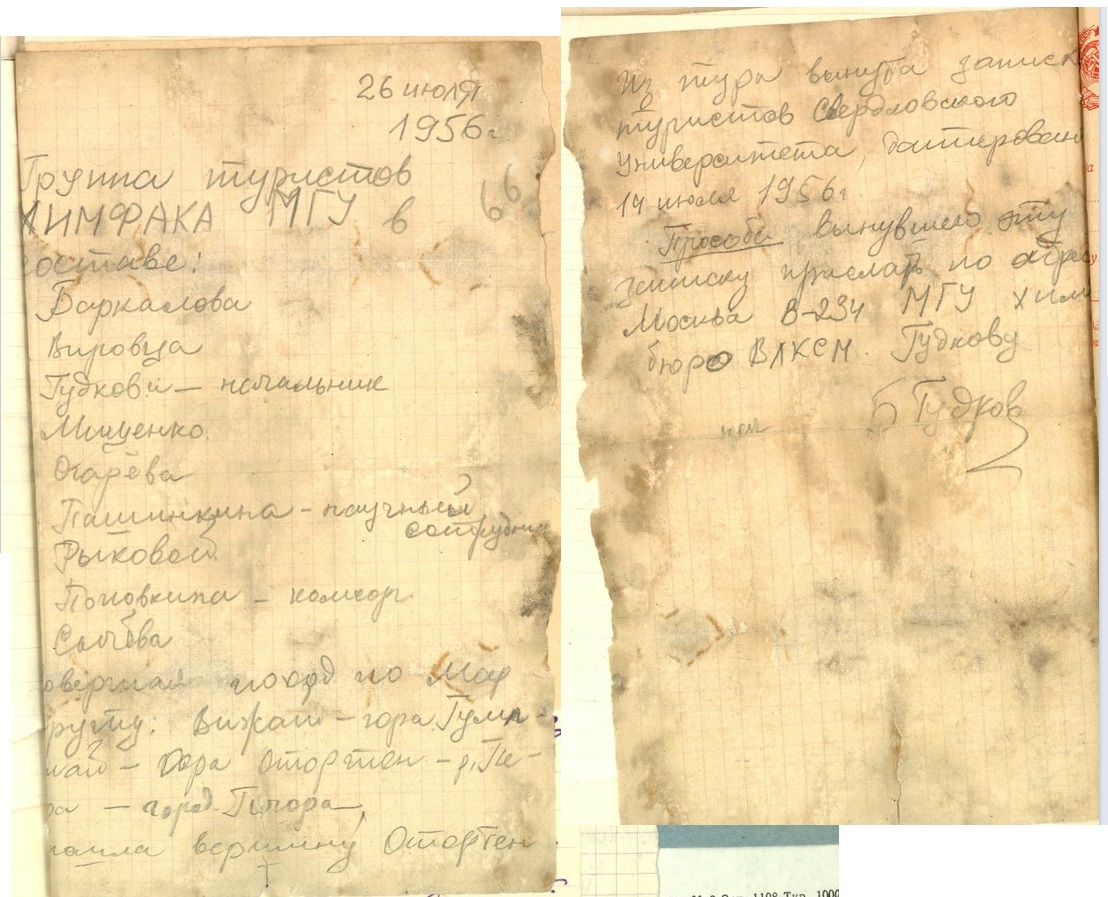 26 июля
1956г
Группа туристов
ХИМФАКА МГУ в
66
оставе:
Баркалова
Вировца
Гудкова — начальник
Мищенко
Огарёва
Пашинкина - научный
сотрудни
Рыковой
Половкина - комсорг
Сычёва
овершая поход по Мар
руту: Вижай - гора Гумп-
пай - гора Отортен - р. Пе-
ра — город Печора
ошла вершину Отортен
Из тура вынута записк
туристов Свердловского
Университета, датирован
14 июля 1956г
Просьба вынувшего эту
записку прислать по адре
Москва В-234 МГУ хим
бюро ВЛКСМ. Гудкову
нач Б Гудков
1198 Тир. 1000